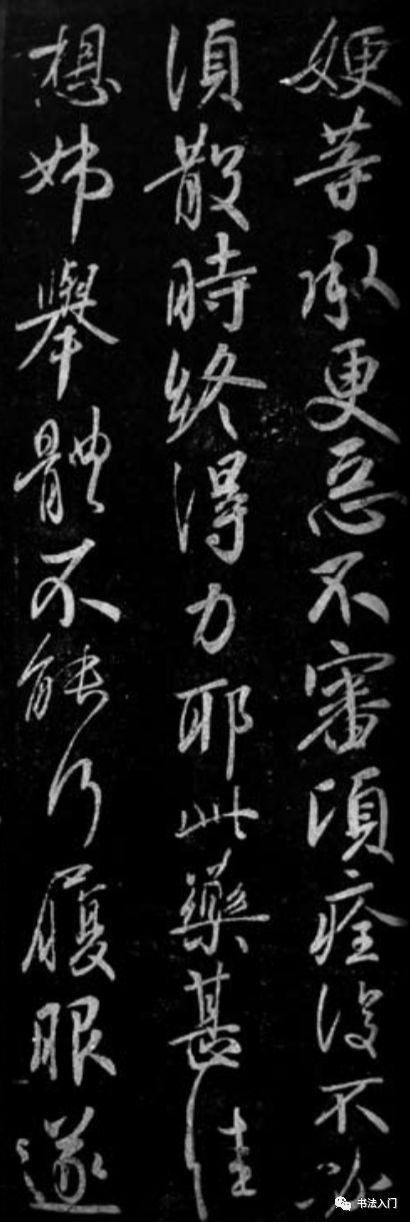 㛐等承更惡不審頃痊復不
頃散時終得力耶此藥甚佳
想姊舉體不能行履眼遂
书法入门